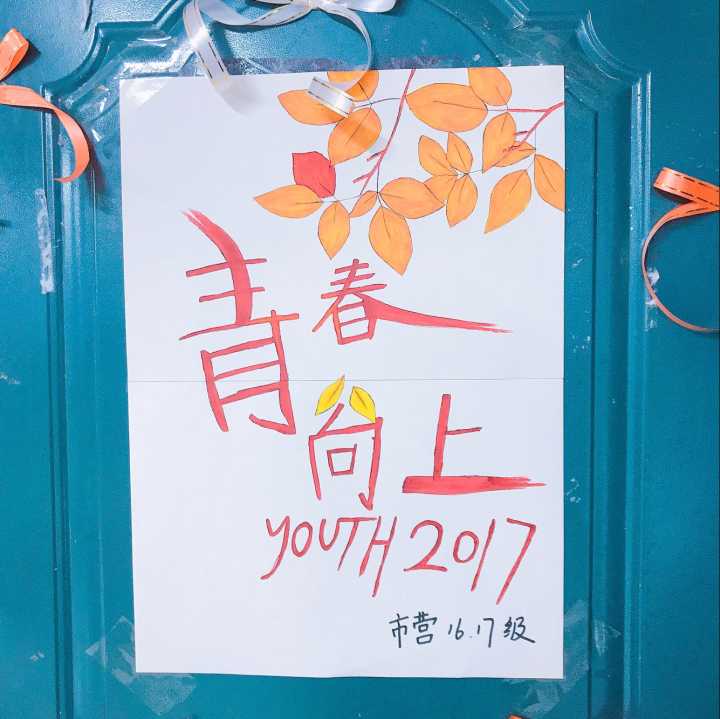 青春
向上
YOUTH 2017
市营16.17级